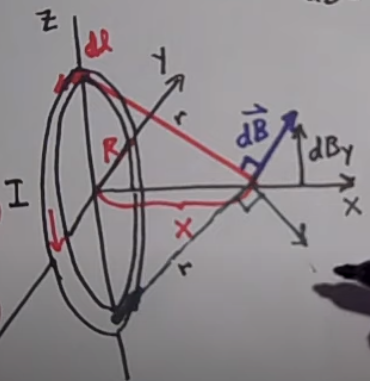 Z
dl
Y
r
R
dB
dBy
I
X
X
r